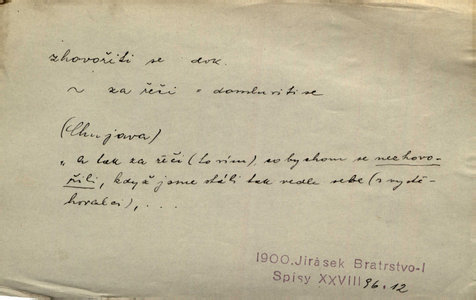 zhovořiti se dok.
~ za řeči = domluviti se
(Chujava)
„ a tak za řeči (to vím), co bychom se nezhovo-
řili, když jsme stáli tak vedle sebe (s vydě-
hovalci), . . .
1900. Jirásek Bratrstvo-I
Spisy XXVIII 96.12